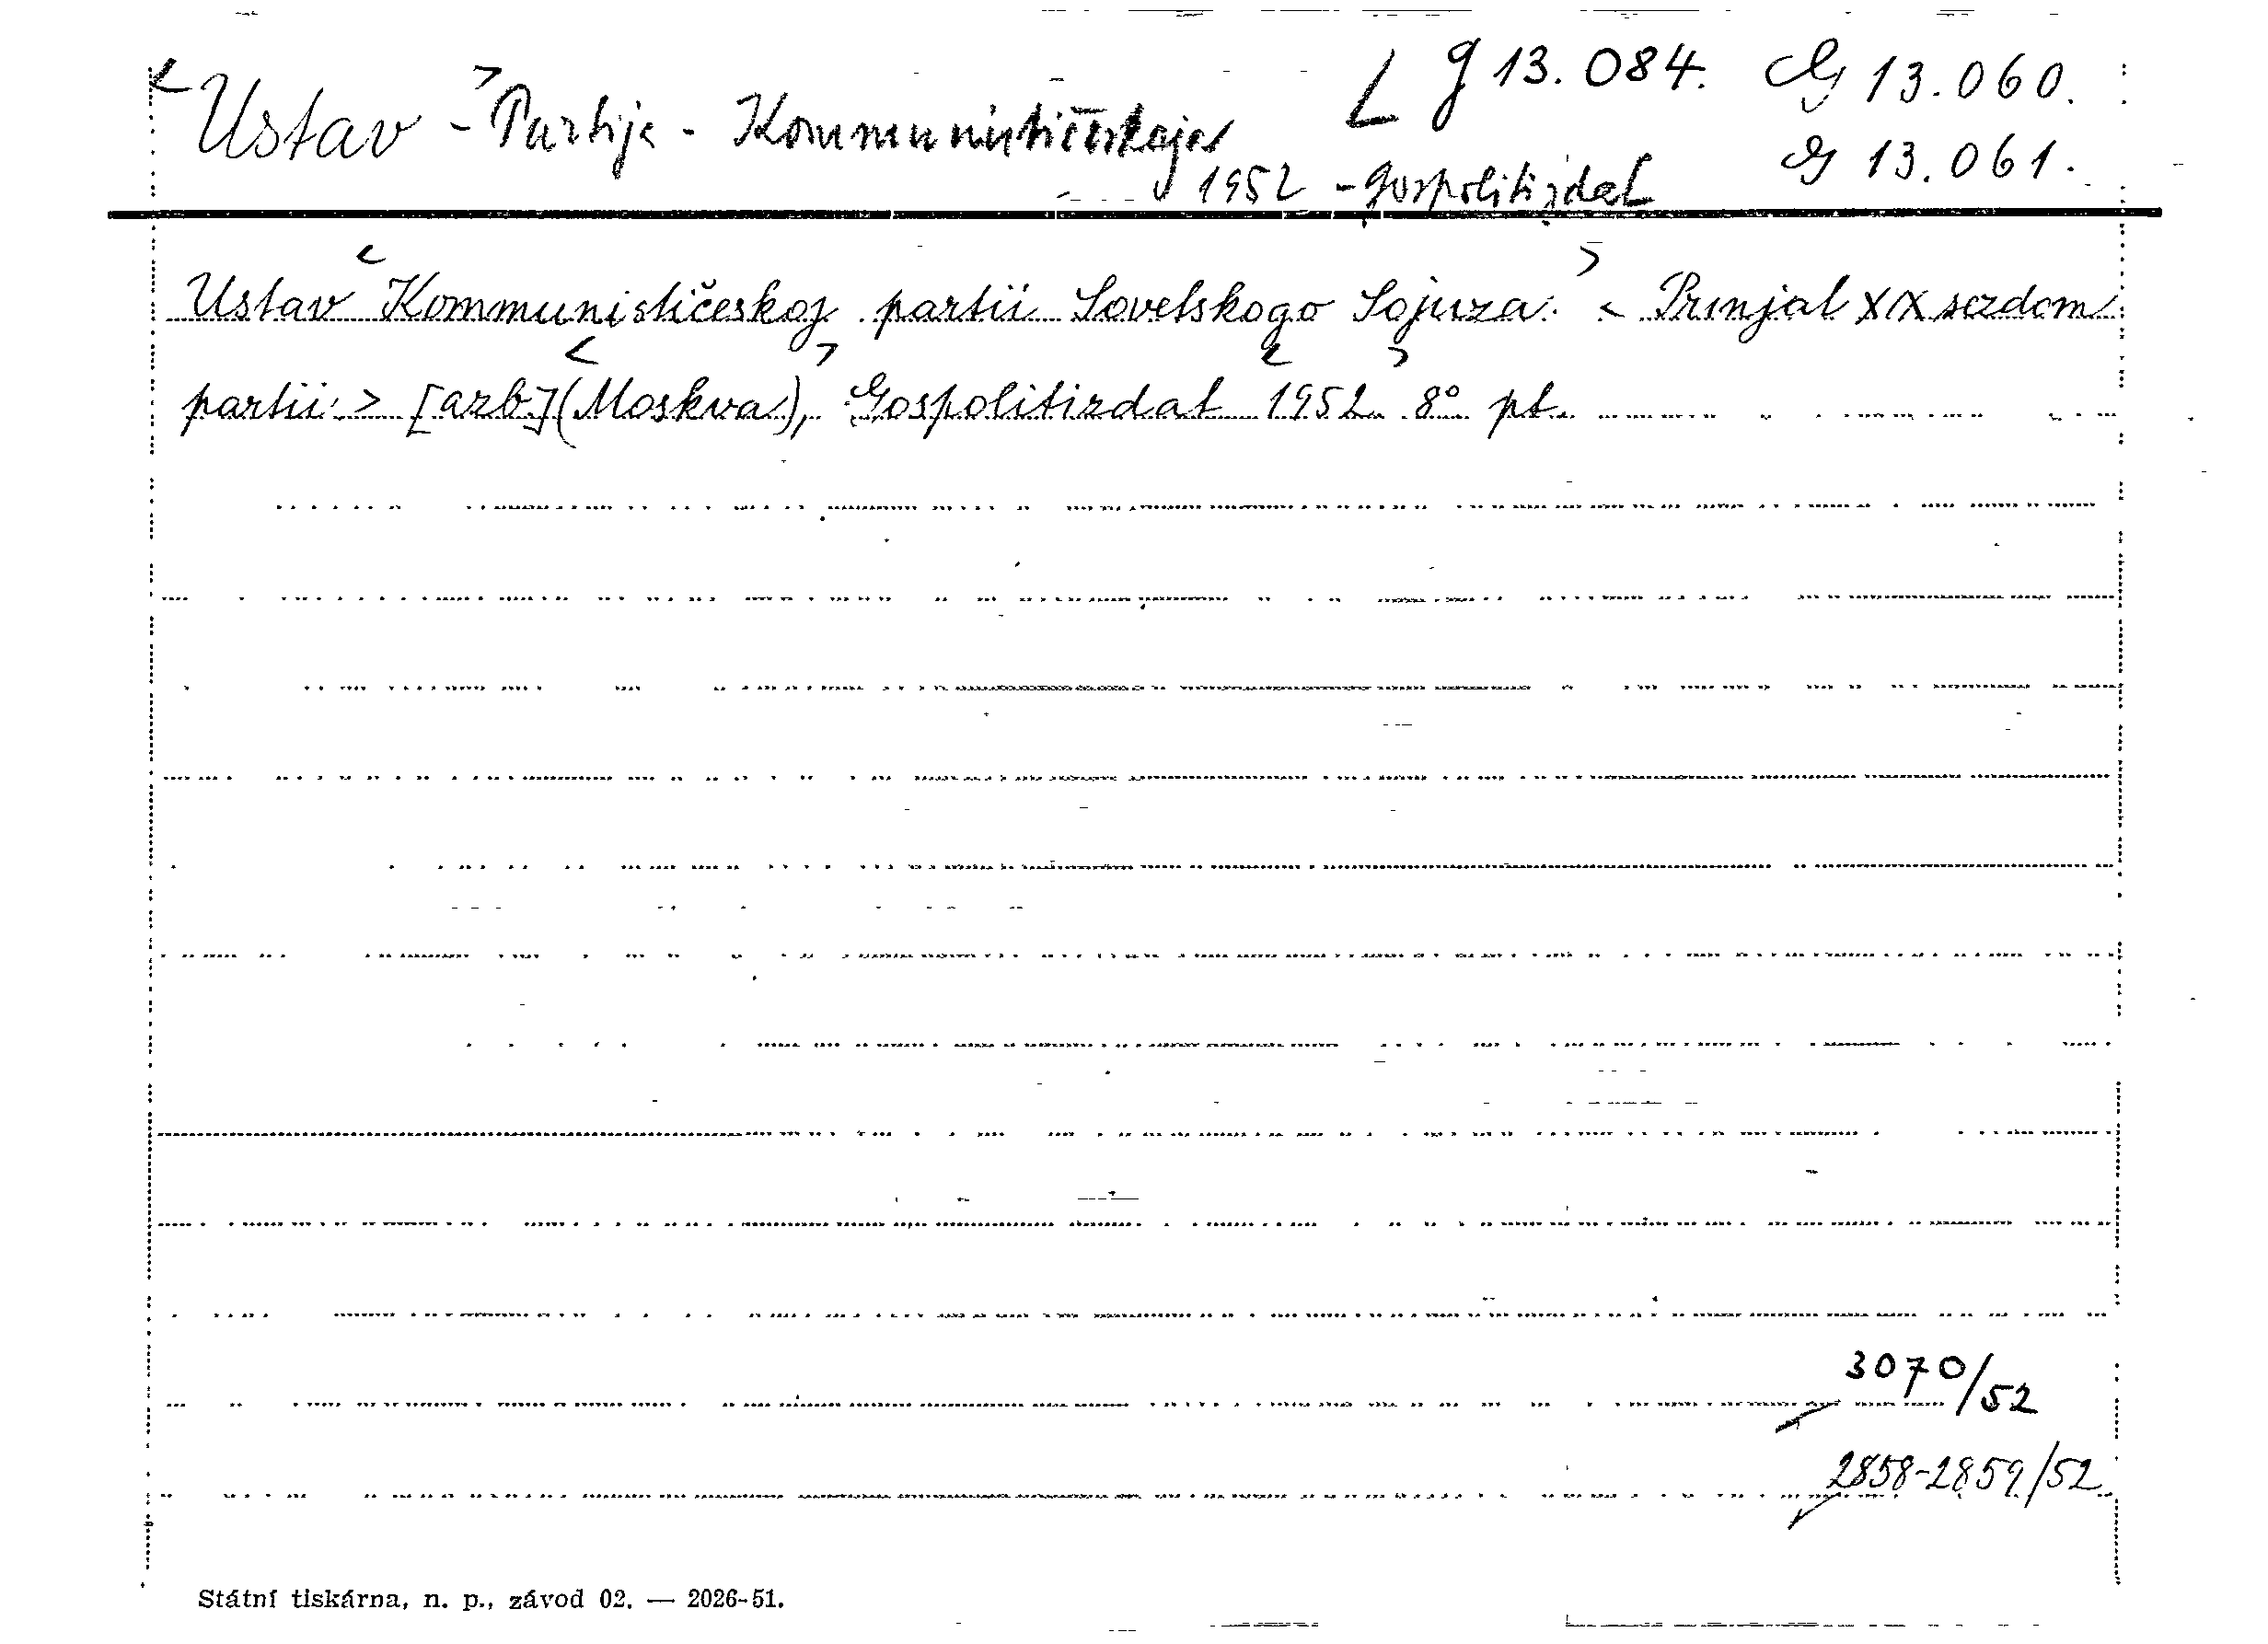 <Ustav - >Partija - Kommunističeskaja L g 13.084. G 13.060.
1952 - Gospolitizdat G 13.061.
Ustav <Kommunističeskoj partii Sovetskogo Sojuza.> < Prinjal XIX sezdom
partii. > [azb.] <(Moskva),> Gospolitizdat <1952.> 8° pt.
3070/52
2858-2859/52
Státní tiskárna, n. p., závod 02. — 2026-51.